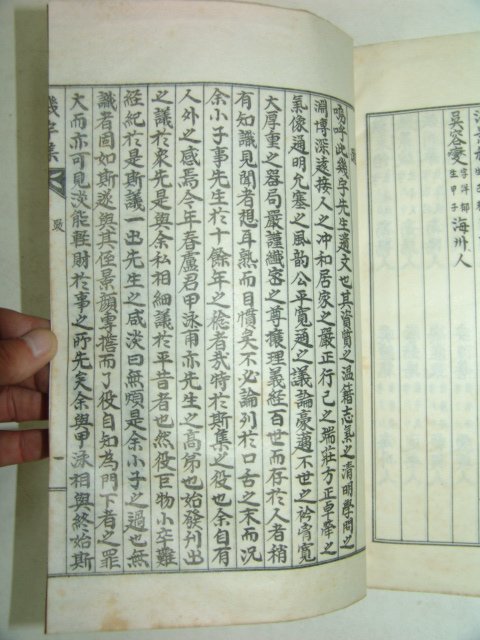 吳容燮 字洋郁 生甲子 海州人
跋
嗚呼此幾宇先生遺文也其資質之溫籍志氣之淸明學問之
淵博深遠接人之冲和居家之嚴正行己之端莊方正卓犖之
氣像通明允塞之風韵公平寬通之議論豪邁不世之衿宵寬
大厚重之器局嚴謹纖密之尊攘理義經百世而存於人者稍
有知識見聞者想耳熟而目慣矣不必論列於口舌之末而況
余小子事先生於十餘年之後者哉特於斯集之役也余自有
人外之感焉今年春盧君甲泳甫亦先生之高弟也始發刊出
之議於衆先是與余私相細議於平昔者也然役巨物小卒難
經紀於是斯議一出先生之咸淡曰無煩是余小子之過也無
識者固如斯遂與其侄景顔專擔而了役自知為門下者之罪
大而亦可見淡能輕財於事之所先矣余與甲泳相與終始斯
幾宇集
跋